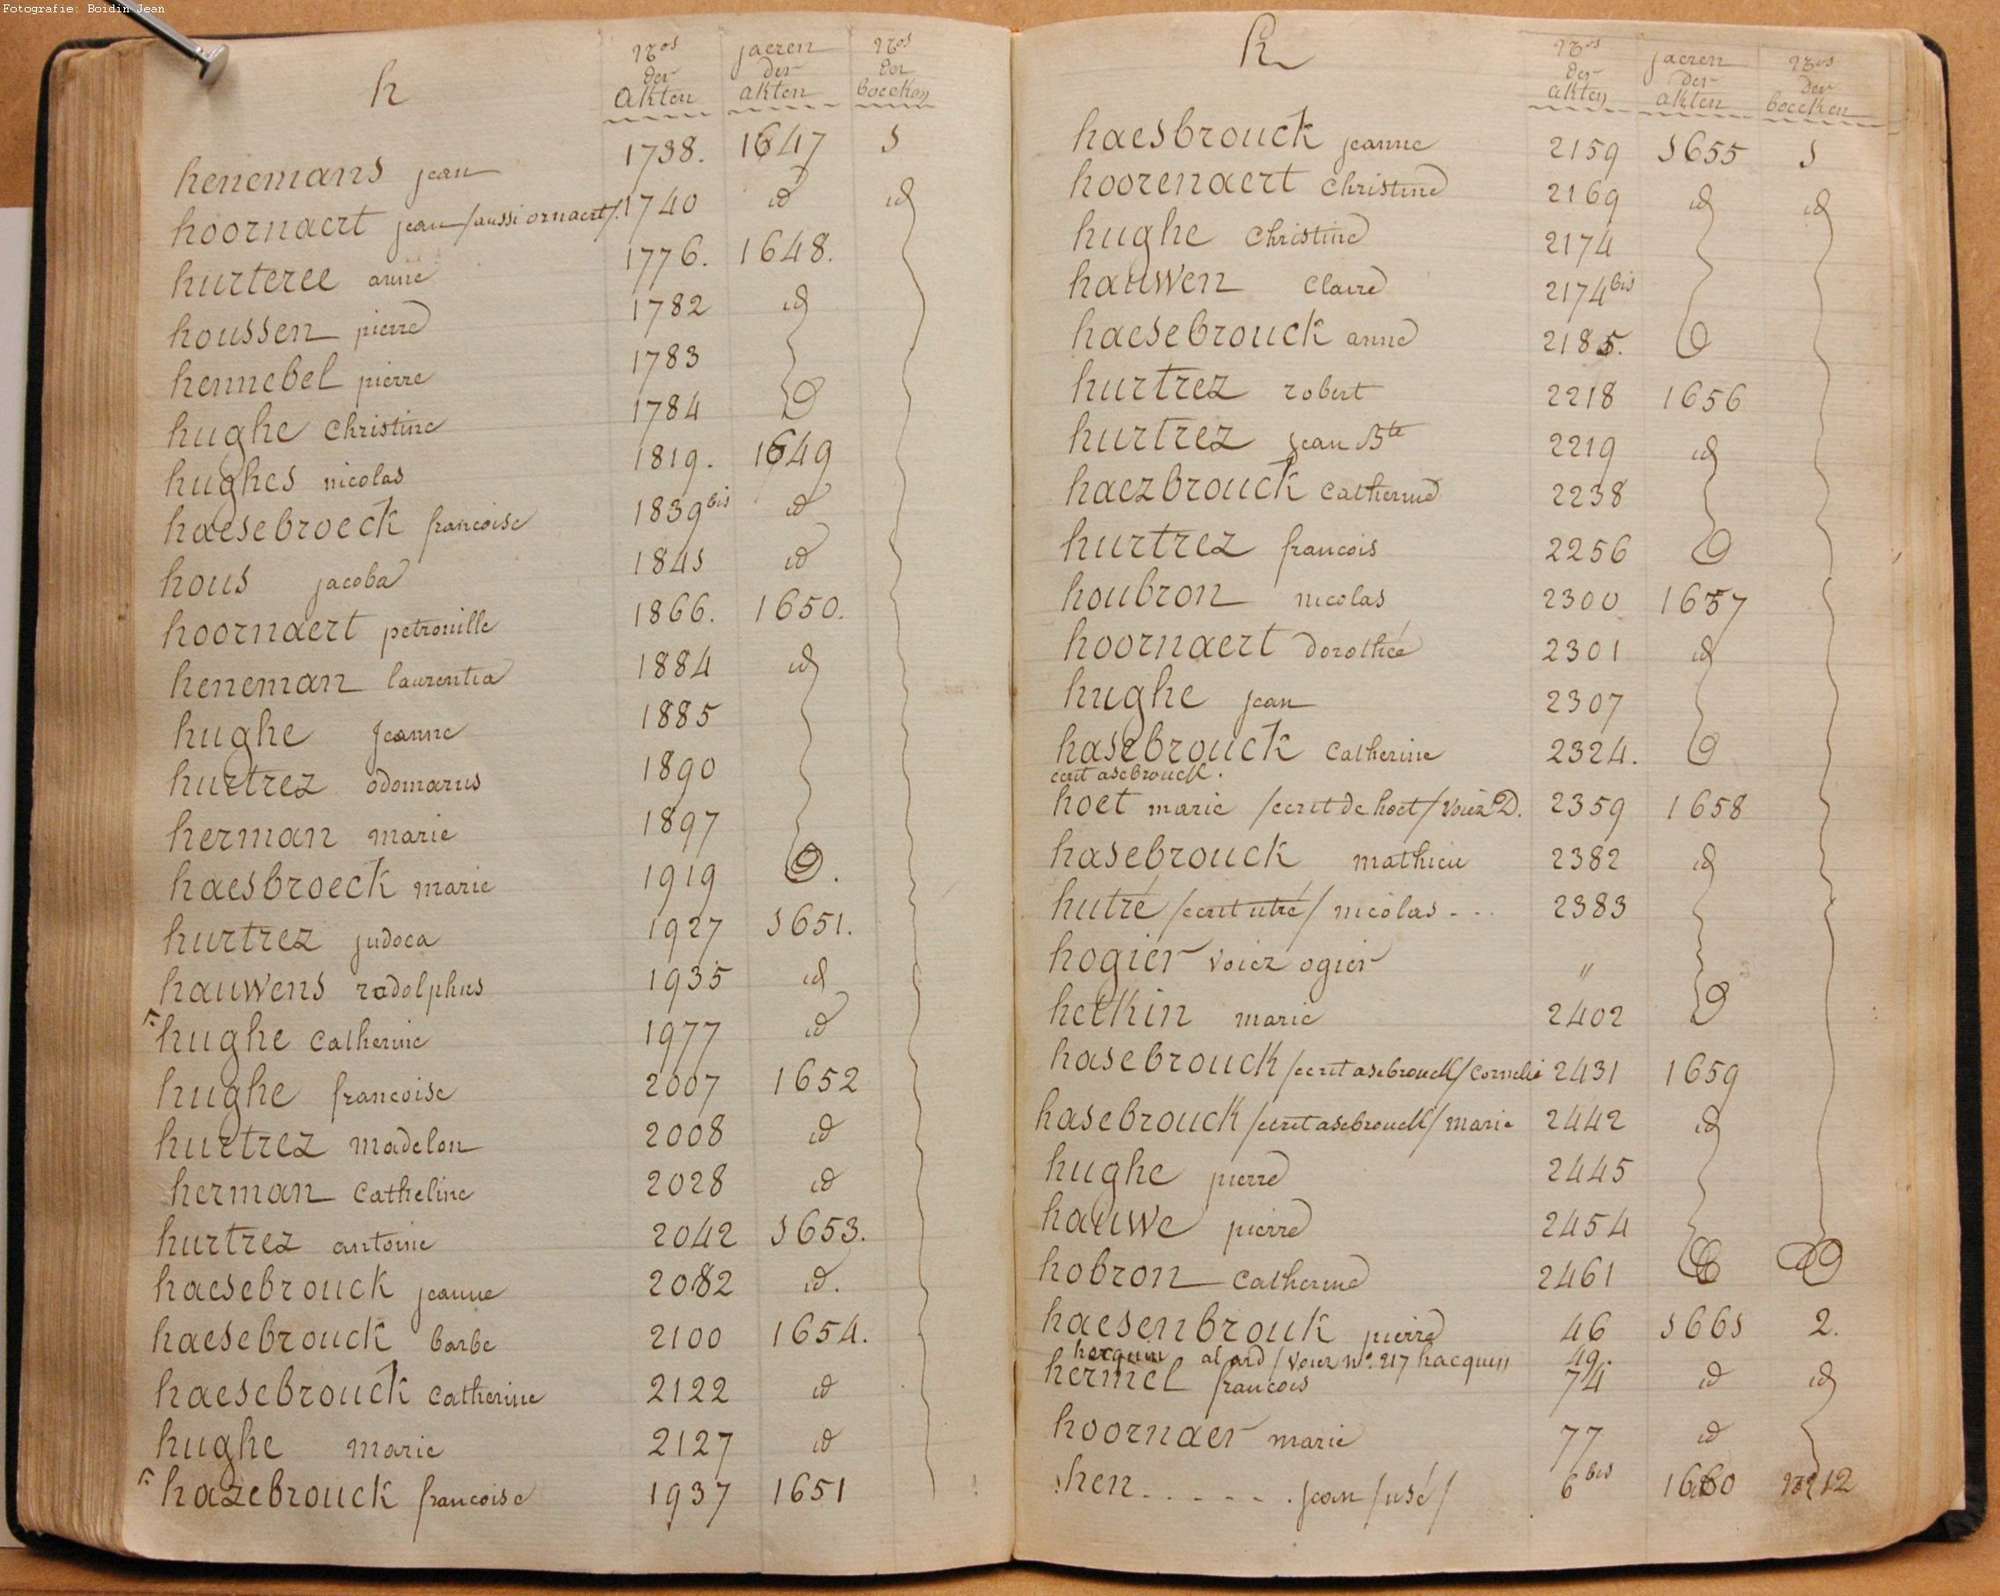 Fotografie: Boidin Jean
h
Nos der akten
jaeren der akten
Nos der boeeken
henemans jean 1738. 1647 1
hoornaert jean /aussi ornaert/. 1740 id id
hurteree anne 1776. 1648.
houssen pierre 1782 id
hennebel pierre 1783
hughe Christine 1784
hughes nicolas 1819. 1649
haesebroeck francoise 1839bis id
hous jacoba 1841 id
hoornaert petronille 1866. 1650.
heneman laurentia 1884 id
hughe jeanne 1885
hurtrez odomarus 1890
herman marie 1897
haesbroeck marie 1919
hurtrez judoca 1927 1651.
hauwens radolphus 1935 id
hughe Catherine 1977 id
hughe francoise 2007 1652
hurtrez madelon 2008 id
herman Catheline 2028 id
hurtrez antoine 2042 1653.
haesebrouck jeanne 2082 id.
haesebrouck barbe 2100 1654.
haesebrouck Catherine 2122 id
hughe marie 2127 id
hazebrouck francoise 1937 1651
h
Nos der akten
jaeren der akten
Nos der boeeken
haesbrouck jeanne 2159 1655 1
hoorenaert Christine 2169 id id
hughe Christine 2174
hauwen Claire 2174bis
haesebrouck anne 2185.
hurtrez robert 2218 1656
hurtrez jean Bte 2219 id
haezbrouck Catherine 2238
hurtrez francois 2256
houbron nicolas 2300 1657
hoornaert Dorothée 2301 id
hughe jean 2307
hasebrouck Catherine 2324.
ecrit asebrouck.
hoet marie /ecrit de hoet/ voiez D. 2359 1658
hasebrouck mathieu 2382 id
hutré /ecrit utré/ nicolas - - - 2383
hogier voiez ogier "
hetkin marie 2402
hasebrouck /ecrit asebrouck/ Cornelie 2431 1659
hasebrouck /ecrit asebrouck/ marie 2442 id
hughe pierre 2445
hauwe pierre 2454
hobron Catherine 2461
haesenbrouk pierre 46 1661 2.
hacquin alard / voiez No. 217 hacquin 49.
hermel francois 74 id id
hoornaer marie 77 id
hen - - - - - - . jean /usé/ 6bis 1660 12